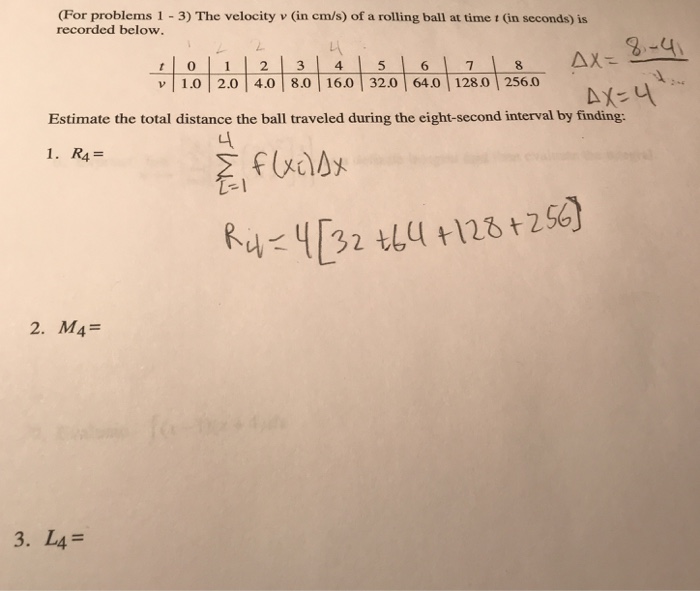 (For problems 1 - 3) The velocity v (in cm/s) of a rolling ball at time t (in seconds) is
recorded below.
t 0 1 2 3 4 5 6 7 8
v 1.0 2.0 4.0 8.0 16.0 32.0 64.0 128.0 256.0
ΔX = 8-4
ΔX=4
Estimate the total distance the ball traveled during the eight-second interval by finding:
1. R4 =
4
Σ f(xi)Δx
i=1
R4 = 4[32 +64 +128 +256]
2. M4=
3. L4=